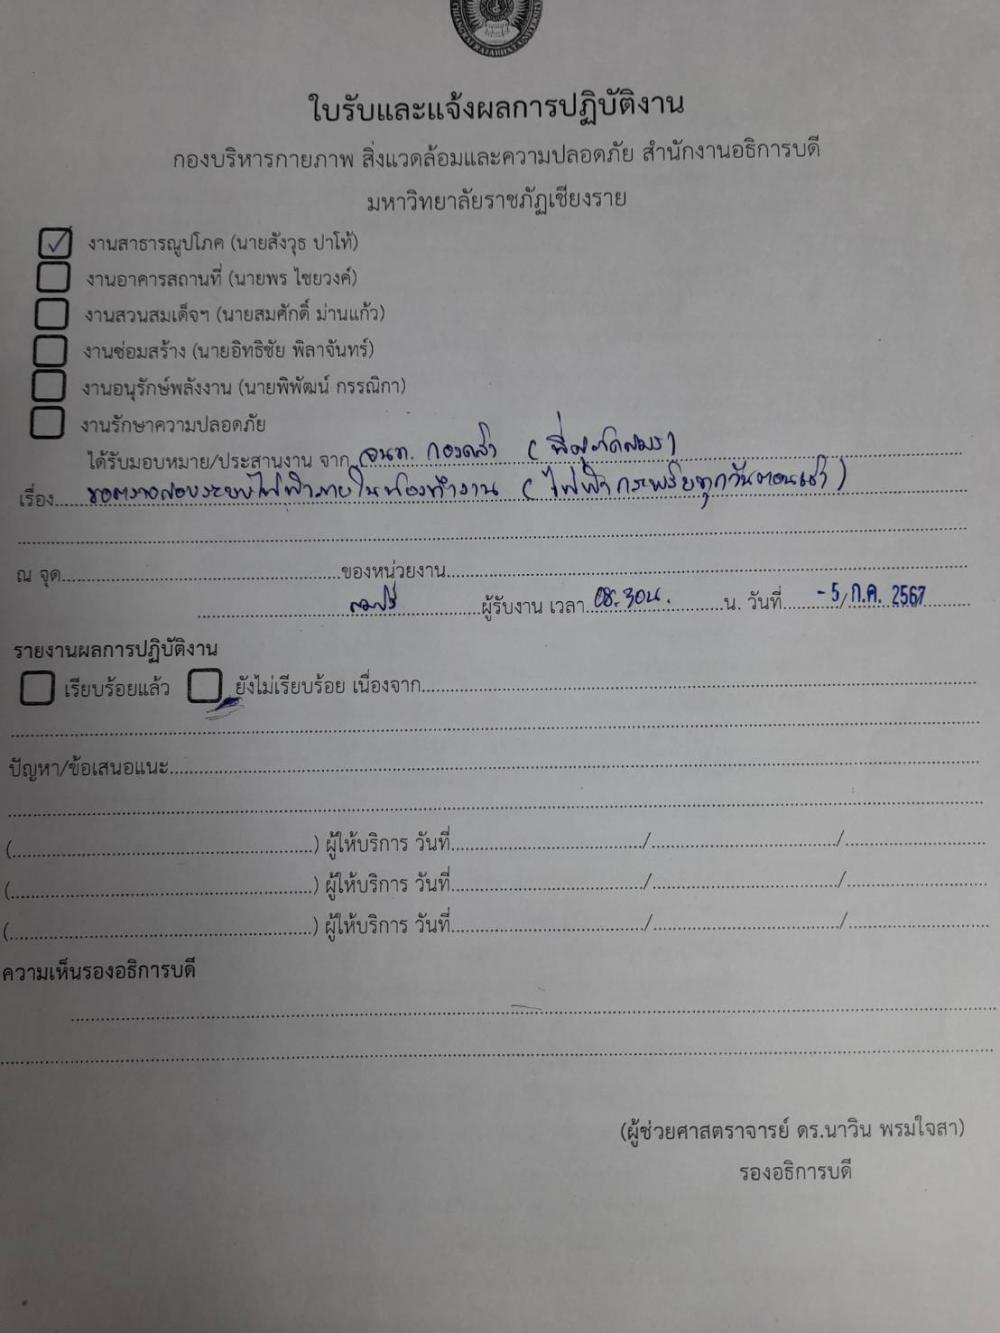 ใบรับและแจ้งผลการปฏิบัติงาน
กองบริหารกายภาพ สิ่งแวดล้อมและความปลอดภัย สำนักงานอธิการบดี
มหาวิทยาลัยราชภัฏเชียงราย
งานสาธารณูปโภค (นายสังวุธ ปาโท้)
งานอาคารสถานที่ (นายพร ไชยวงค์)
งานสวนสมเด็จฯ (นายสมศักดิ์ ม่านแก้ว)
งานซ่อมสร้าง (นายอิทธิชัย พิลาจันทร์)
งานอนุรักษ์พลังงาน (นายพิพัฒน์ กรรณิกา)
งานรักษาความปลอดภัย
ได้รับมอบหมาย/ประสานงาน จาก จนท. กองคลัง
เรื่อง ขอตรวจสอบระบบไฟฟ้าภายในห้องทำงาน (ไฟฟ้ากระพริบทุกวันตอนเช้า)
ณ จุด ของหน่วยงาน
ผู้รับงาน เวลา 08.30น. น. วันที่ -5 ก.ค. 2567
รายงานผลการปฏิบัติงาน
เรียบร้อยแล้ว ยังไม่เรียบร้อย เนื่องจาก
ปัญหา/ข้อเสนอแนะ
( ) ผู้ให้บริการ วันที่ / /
( ) ผู้ให้บริการ วันที่ / /
( ) ผู้ให้บริการ วันที่ / /
ความเห็นรองอธิการบดี
(ผู้ช่วยศาสตราจารย์ ดร.นาวิน พรมใจสา)
รองอธิการบดี